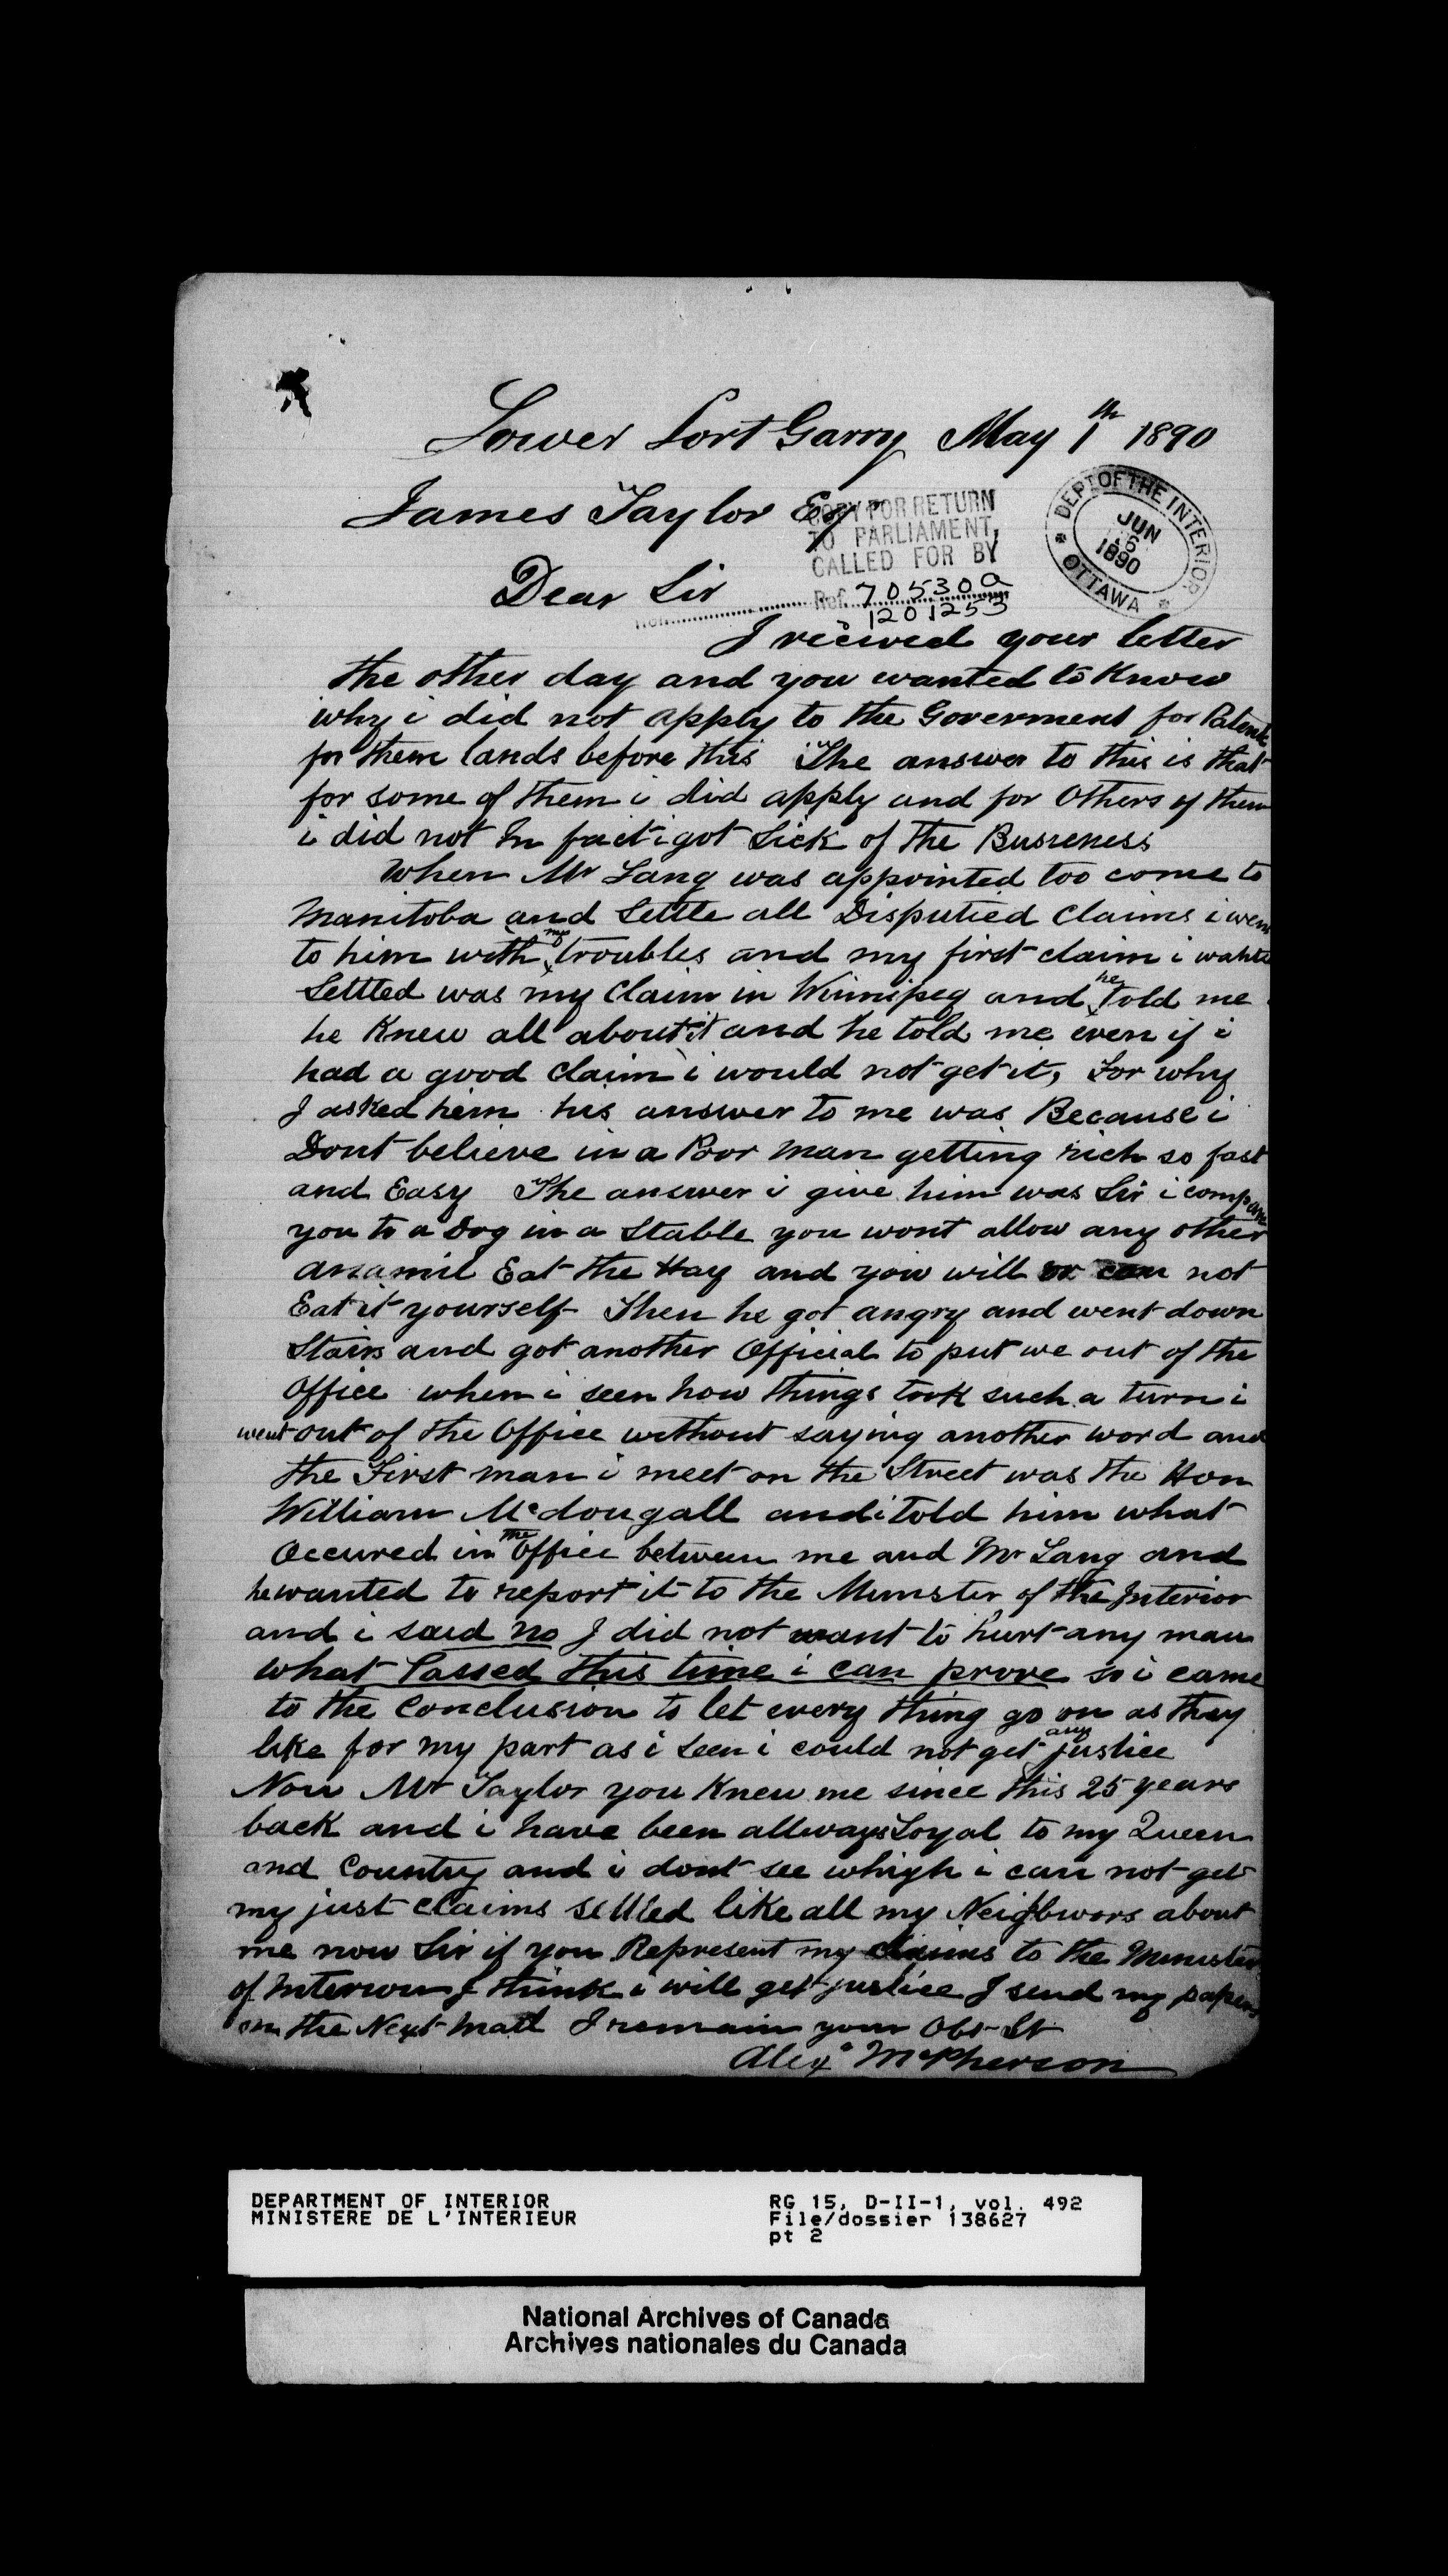 Lower Fort Garry May 1th 1890
James Taylor Esqr
COPY FOR RETURN
TO PARLIAMENT,
CALLED FOR BY
DEPT OF THE INTERIOR
JUN
16
1890
OTTAWA
Dear Sir
Ref. 70530 a
1201253
I recieved your letter
the other day and you wanted to Know
why i did not apply to the Goverment for Patents
for them lands before this The answer to this is that
for some of them i did apply and for Others of them
i did not In fact i got Sick of the Busseness
When Mr Lang was appointed too come to
Manitoba and Settle all Disputied Claims i went
to him with my troubles and my first claim i wanted
Settled was my Claim in Winnipeg and he told me
he Knew all about it and he told me even if i
had a good Claim i would not get it, For why
I asked him his answer to me was Because i
Dont believe in a Poor man getting rich so fast
and Easy The answer i give him was Sir i compare
you to a Dog in a Stable you wont allow any other
anamil Eat the Hay and you will or can not
Eat it yourself Then he got angry and went down
Stairs and got another Official to put me out of the
Office when i seen how things took such a turn i
went out of the Office without saying another word and
the First man i meet on the Street was the Hon
William McDougall and i told him what
Occured in the Office between me and Mr Lang and
he wanted to report it to the Minister of the Interior
and i said no I did not want to hurt any man
what Passed this time i can prove so i came
to the Conclusion to let every thing go on as they
like for my part as i seen i could not get any justice
Now Mr Taylor you Knew me since this 25 years
back and i have been allways Loyal to my Queen
and Country and i dont see whigh i can not get
my just claims settled like all my Neighbwors about
me now Sir if you Represent my claims to the Minister
of Interior I think i will get justice I send my papers
on the Next Mail I remain your Obt St
Alexr McPherson
DEPARTMENT OF INTERIOR
MINISTERE DE L'INTERIEUR
RG 15, D-II-1, vol. 492
File/dossier 138627
pt 2
National Archives of Canada
Archives nationales du Canada